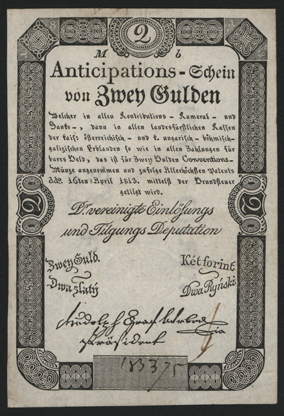 2
M b
Anticipations-Schein
von Zwey Gulden
Welcher in allen Kontributions- Kameral- und
Banko-, dann in allen landesfürstlichen Kassen
der kais: österreichisch- und k. ungarisch- böhmisch-
galizischen Erblanden so wie in allen Zahlungen für
bares Geld, das ist für Zwey Gulden Conventions-
Münze angenommen und zufolge Allerhöchsten Patents
ddo. 16ten April 1813. mittelst der Grundsteuer
getilgt wird.
Die vereinigte Einlösungs
und Tilgungs Deputation
2 2
Zwey Guld. Két forint
Dwa zlatý Dwa Ryński
Rudolph Graf
Präsident
18337